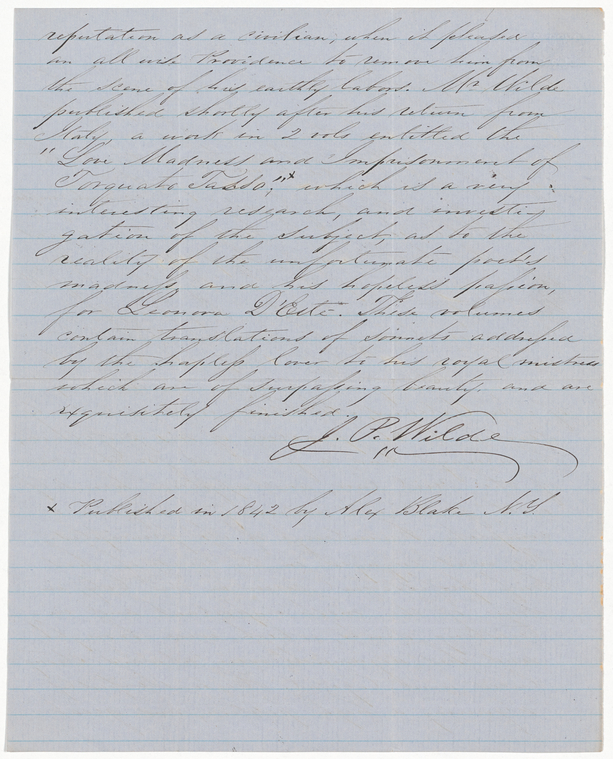 reputation as a civilian, when it pleased
an all wise Providence to remove him from
the scene of his earthly labors. Mr Wilde
published shortly after his return from
Italy, a work in 2 vols entitled the
"Love Madness and Imprisonment of
Torquato Tasso;"x which is a very
interesting research, and investi
gation of the subject, as to the
reality of the unfortunate poet's
madness, and his hopeless passion,
for Leonora D'Este. These volumes
contain translations of sonnets addressed
by the hapless lover to his royal mistress
which are of surpassing beauty, and are
exquisitely finished.
J. P. Wilde
x Published in 1842 by Alex Blake N.Y.